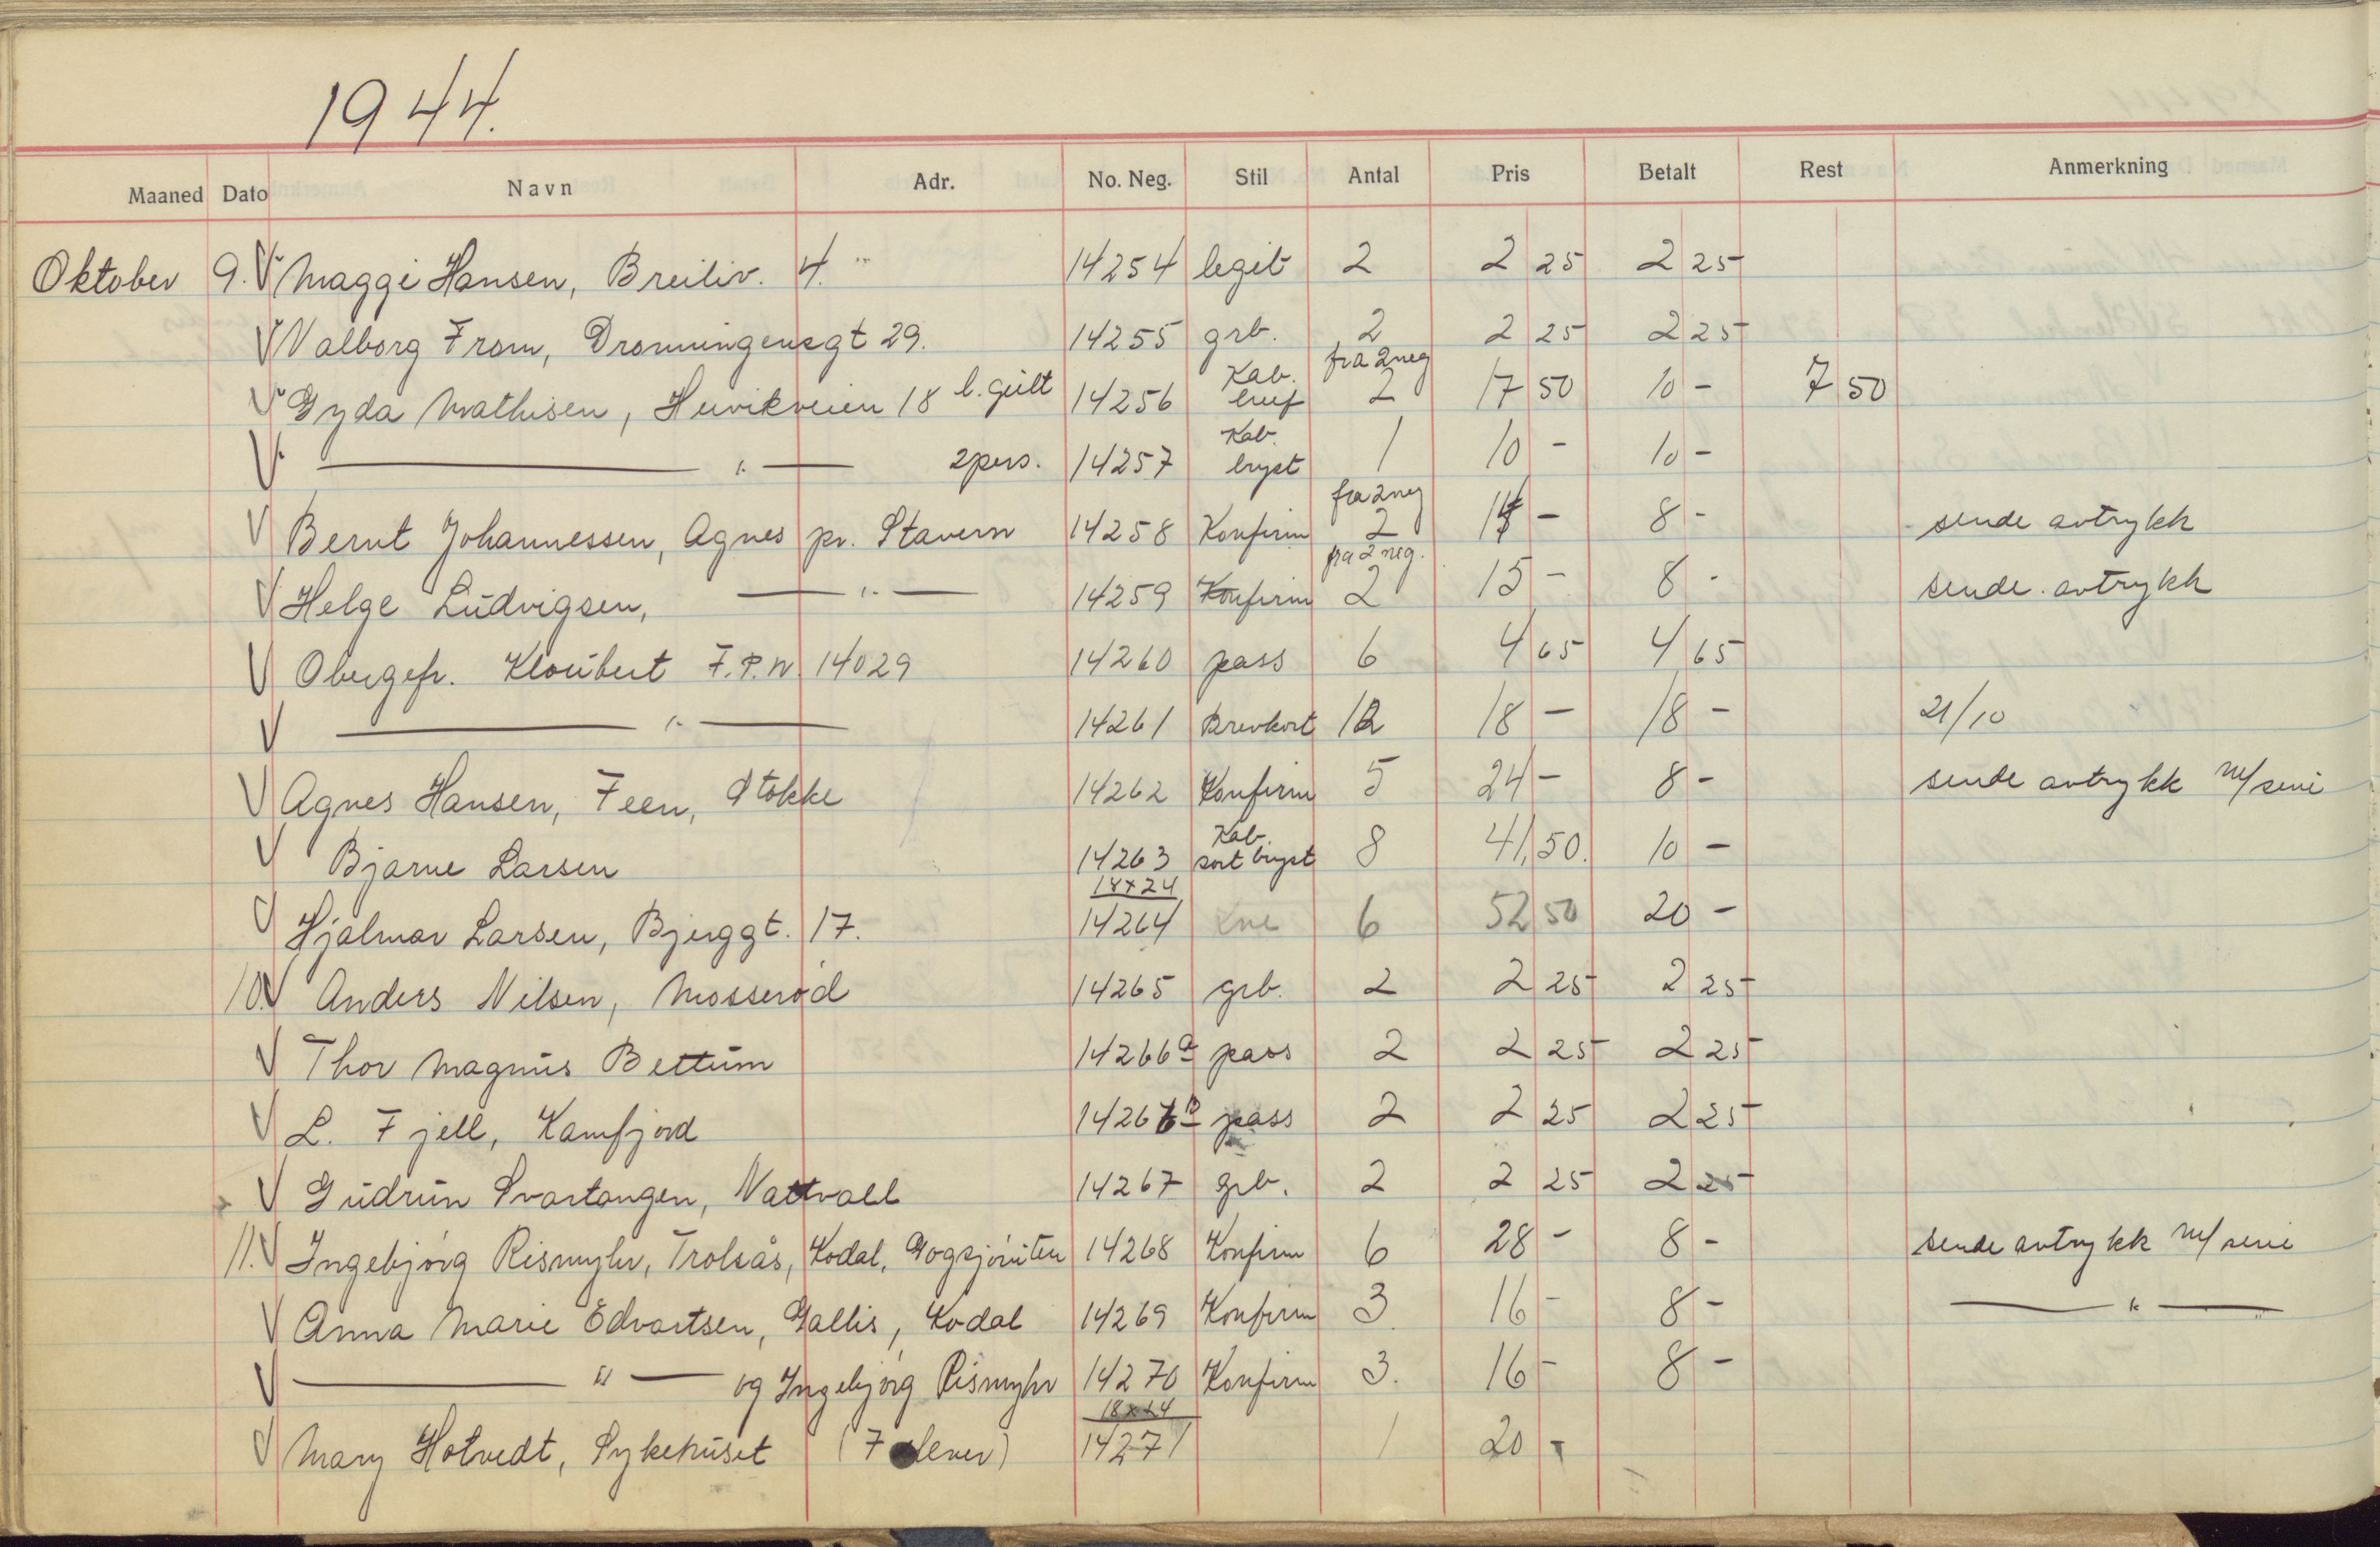 1944.
Maaned Dato Navn Adr. No. Neg. Stil Antal Pris Betalt Rest Anmerkning
Oktober 9. V Maggi Hansen, Breiliv. 4. 14254 legit 2 2 25 2 25
V Valborg From, Dronningensgt 29. 14255 grb. 2 2 25 2 25
V Gyda Mathisen, 18 14256 Kab. fra 2 neg 2 17 50 10 - 7 50
V — " — 2 pers. 14257 Kab. bryst 1 10 - 10 -
V Bernt Johannessen, Agnes pr. Stavern 14258 Konfirm fra 2 neg 2 - 8 - sende avtrykk
V Helge Ludvigsen, — " — 14259 Konfirm fra 2 neg. 2 15 - 8 - sende avtrykk
V Obergefr. Kloubert F.P.N 14029 14260 pass 6 4 65 4 65
V — " — 14261 Brevkort 12 18 - 18 - 21/10
V Agnes Hansen, Feen, Stokke 14262 Konfirm 5 24 - 8 - sende avtrykk m/ serie
V Bjarne Larsen 14263 Kab. sort bryst 8 41,50. 10 -
V Hjalmar Larsen, Bjerggt. 17. 18x24 14264 kne 6 52 50 20 -
10. V Anders Nilsen, Mosserød 14265 grb. 2 2 25 2 25
V Thor Magnus Bettum 14266a pass 2 2 25 2 25
V L. Fjell, Kamfjord 14266B pass 2 2 25 2 25
V Gudrun Svartangen, Nattvall 14267 grb. 2 2 25 2 25
11. V Ingebjørg Rismyhr, Trolsås, Kodal, 14268 Konfirm 6 28 - 8 - sende avtrykk m/ serie
V Anna Marie Edvartsen, Gallis, Kodal 14269 Konfirm 3 16 - 8 - — " —
V — " — og Ingebjørg Rismyhr 14270 Konfirm 3. 16 - 8 -
V Mary Hotvedt, Sykehuset (7 elever) 18x24 14271 1 20 -